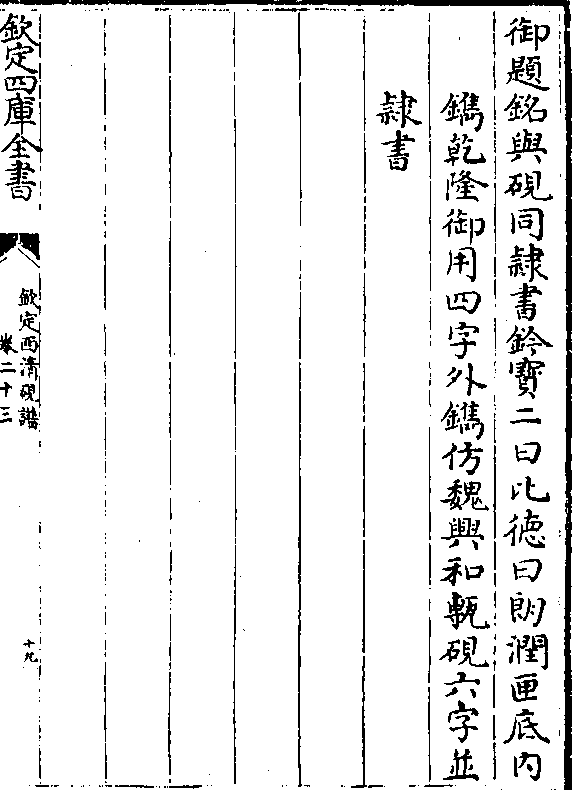 御題銘與硯同隸書鈐寳二曰比徳曰朗潤匣底内
鐫乾隆御用四字外鐫仿魏興和甎硯六字並
隸書
欽定四庫全書
欽定西清硯譜
卷二十三
十九